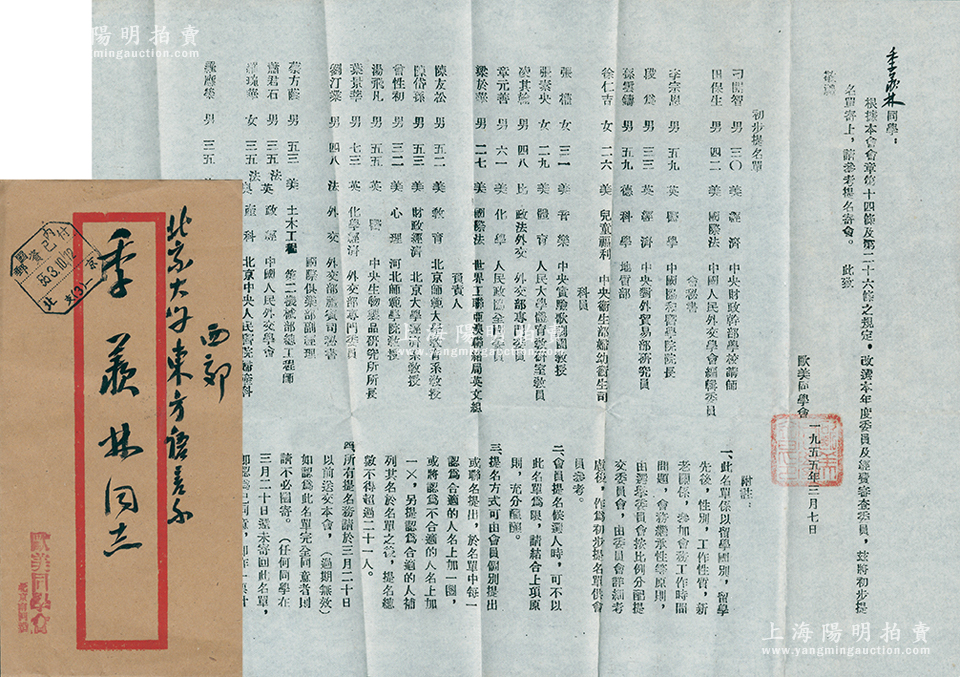 陽明拍賣
www.yangmingauction.com
季羨林同學：
根據本會會章第十四條及第二十六條之規定，改選本年度委員及經費審查委員，茲將初步提
名單寄上，請參考提名寄會。　此致
敬禮
歐美同學會　一九五五年三月七日
初步提名單
刁開智　男　三〇　美　經濟　中央財政幹部學校講師
田保生　男　四二　美　國際法　中國人民外交學會編輯委員
李宗恩　男　五九　英　醫學　中國協和醫學院院長
男　三三　英　經濟　中央對外貿易部研究員
孫雲鑄　男　五九　德　科學　地質部
徐仁吉　女　二六　美　兒童福利　中央衛生部婦幼衛生司
科員
張權　女　三一　美　音樂　中央實驗歌劇院教授
女　二九　美　體育　人民大學體育教研室教員
凌其翰　男　四八　比　政法外交　外交部專門委員
章元善　男　六一　美　化學　人民政協全國委員
梁於華　男　二七　美　國際法　世界工聯亞澳聯絡局英文組
負責人
陳友松　男　五二　美　教育　北京師範大學教育系教授
陳岱孫　男　五五　美　財政經濟　北京大學經濟系教授
曾性初　男　三二　美　心理　河北師範學院教授
湯飛凡　男　五五　醫　中央生物製品研究所所長
葉景莘　男　七三　英　化學經濟　外交部專門委員
劉汀業　男　四八　法　外交　外交部禮賓司秘書
國際俱樂部副經理
蔡方蔭　男　五三　美　土木工程　第二機械部總工程師
蕭君石　男　三五　英　政經　中國人民外交學會
女　三五　英　產科　北京中央人民醫院婦產科
男　三五
附註：
一、此名單係以留學國別，留學
先後，性別，工作性質，新
老關係，參加會務工作時間
問題，會務繼承性等原則，
由選舉委員會按比例分配提
交委員會，由委員會詳細考
慮後，作為初步提名單供會
員參考。
二、會員提名候選人時，可不以
此名單為限，請結合上項原
則，充分醞釀。
三、提名方式可由會員個別提出
或聯名提出，於名單中每一
認為合適的人名上加一圈，
或將認為不合適的人名上加
一×，另提認為合適的人補
列其名於名單之後，提名總
數不得超過二十一人。
四、所有提名務請於三月二十日
以前送交本會，（過期無效）
如認為此名單完全同意者則
請不必回寄。（任何同學在
三月二十日還未寄回此名單，
即認為已同意，
西郊
北京大學東方語言系
季羨林同志
國內郵資已付
55.3.10.12
北京(3)
歐美同學會
上海陽明拍賣
www.yangmingauction.com